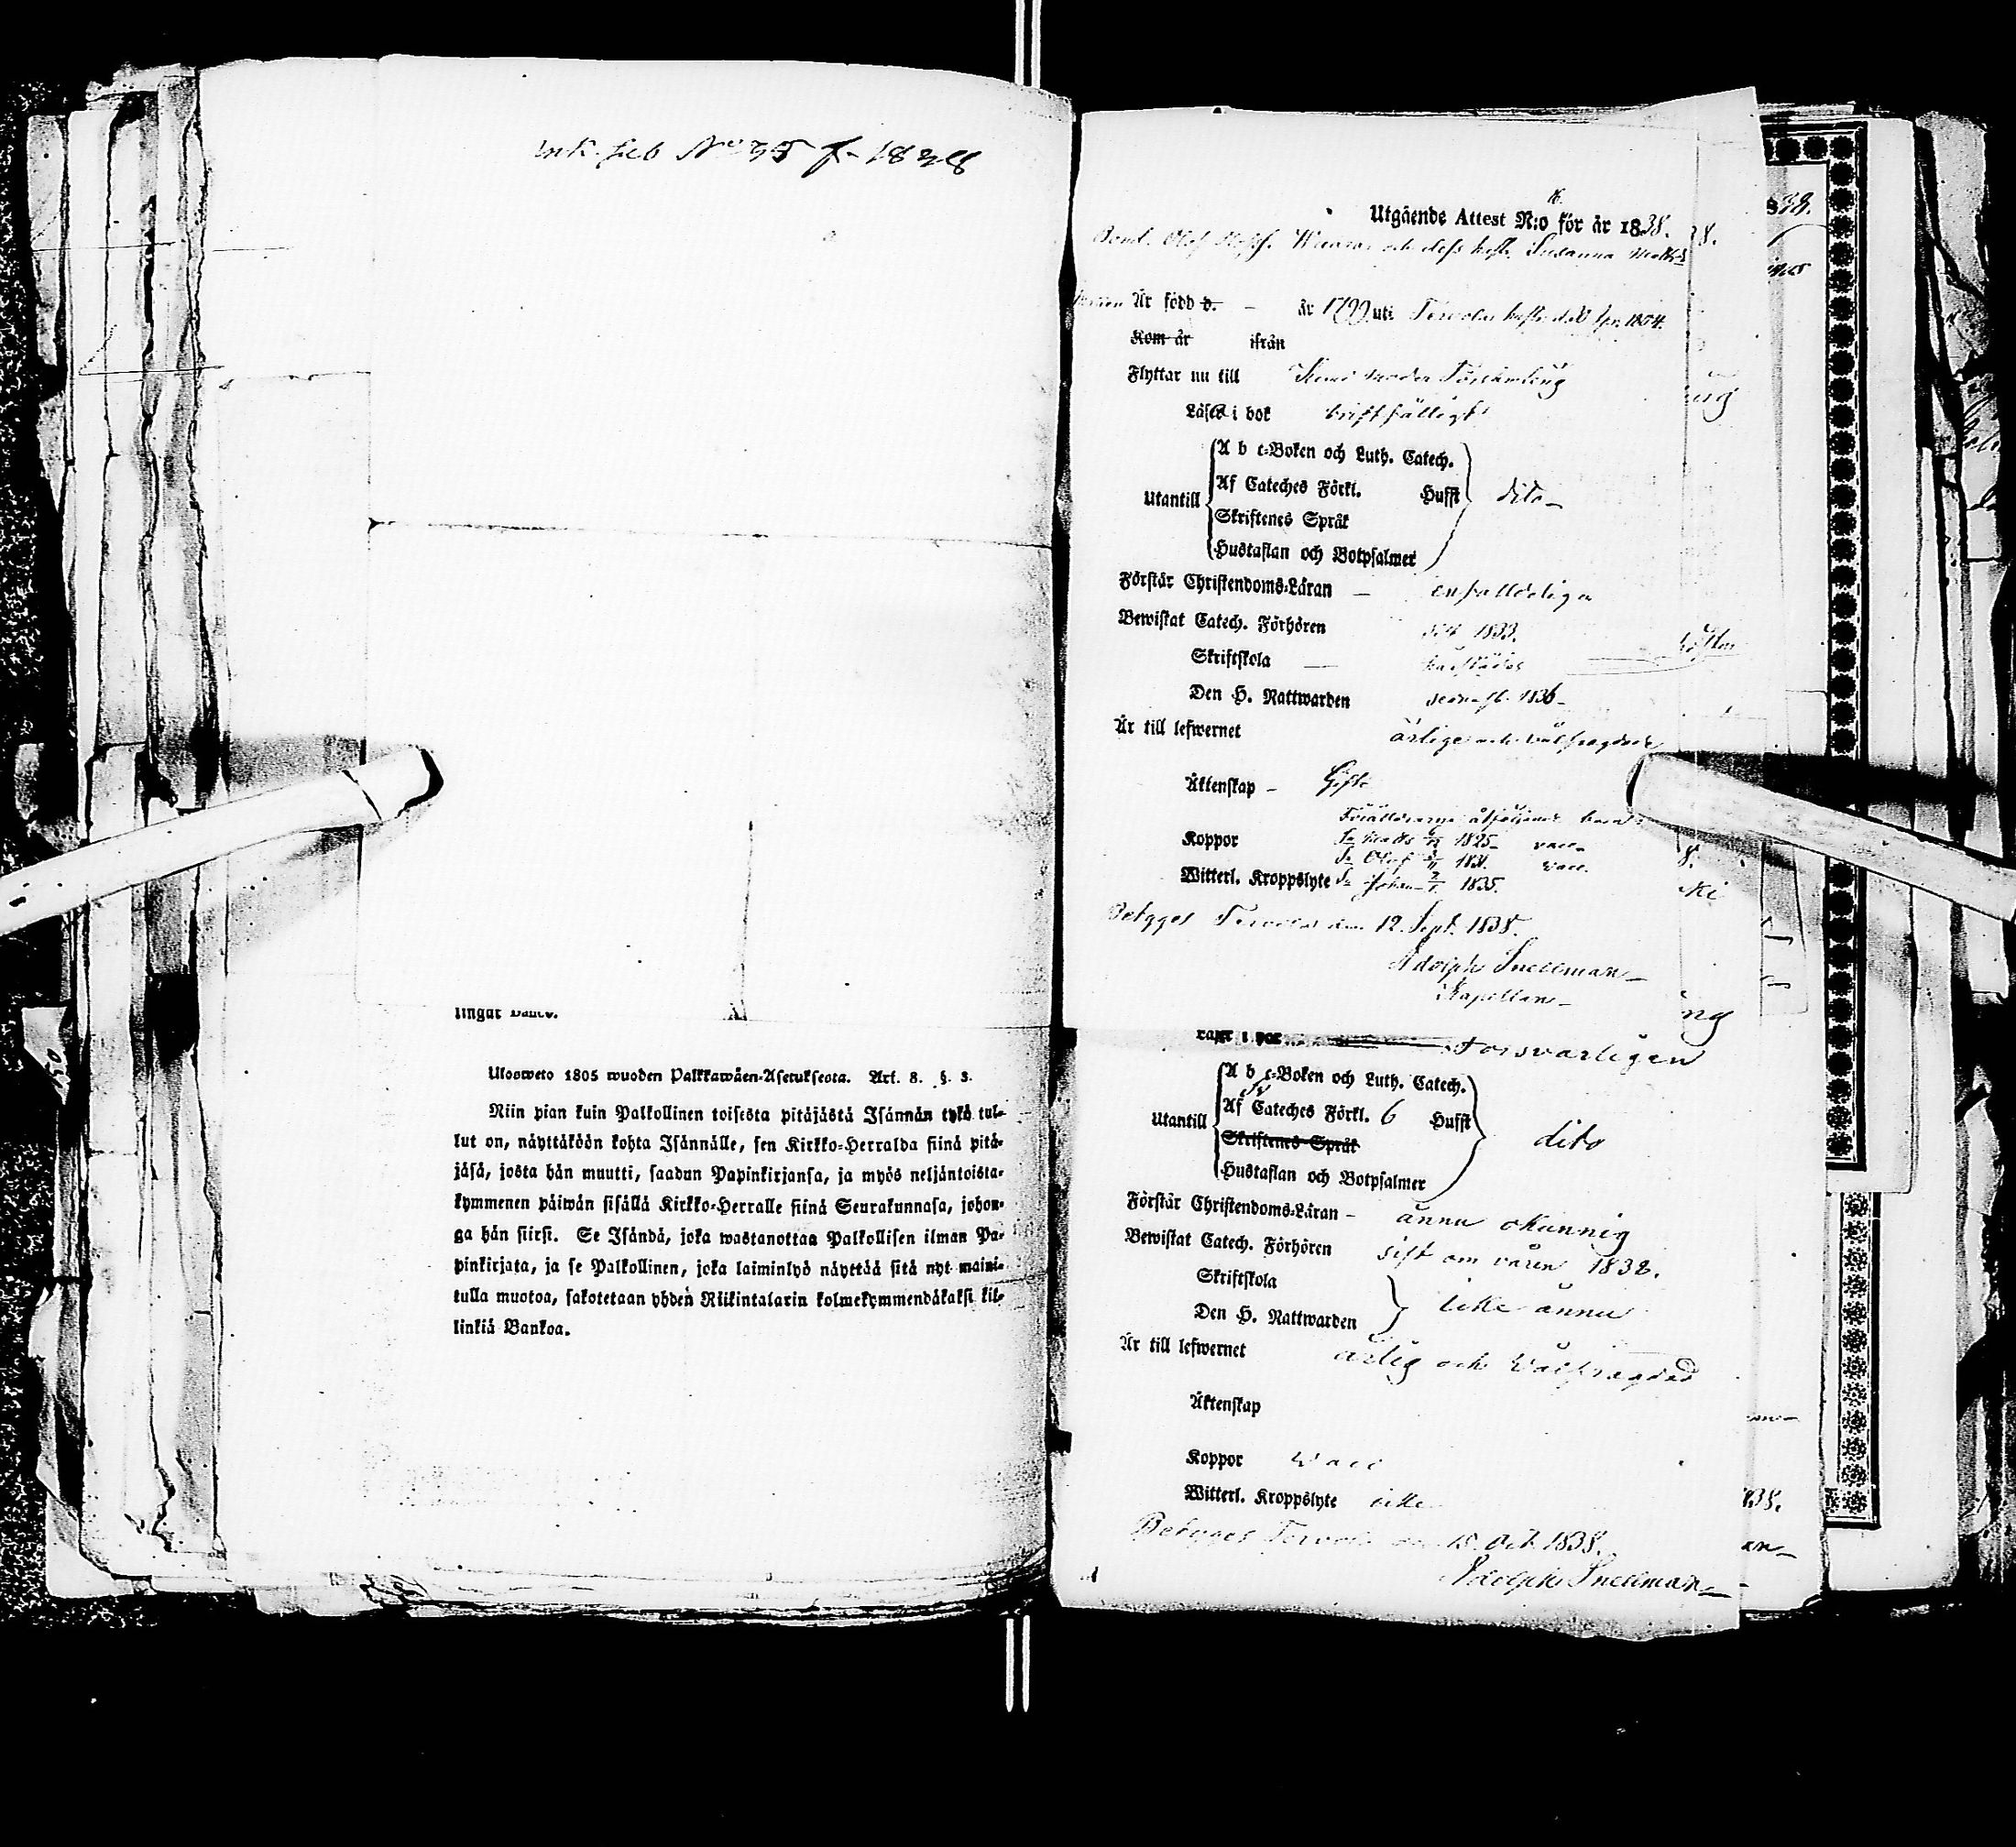 No 35 f. 1838
lingar Banco.
Ulosweto 1805 wuoden Palkkawäen-Asetuksesta. Art. 8. §. 3.
Niin pian kuin Palkollinen toisesta pitäjästä Isännän tykö tul-
lut on, näyttäköön kohta Isännälle, sen Kirkko-Herralda siinä pitä-
jäsä, josta hän muutti, saadun Papinkirjansa, ja myös neljäntoista-
kymmenen päiwän sisällä Kirkko-Herralle siinä Seurakunnasa, johon-
ga hän siirsi. Se Isändä, joka wastanottaa Palkollisen ilman Pa-
pinkirjata, ja se Palkollinen, joka laiminlyö näyttää sitä nyt maini-
tulla muotoa, sakotetaan yhden Riikintalarin kolmekymmendäkaksi kil-
linkiä Bankoa.
Utgående Attest N:o 16. för år 1838.
Olof och dess hustr. Susanna Matts
Är född d. – år 1799 uti Tervola hustr. d. 1804.
Kom år ifrån
Flyttar nu till Kemi moder Församling
Läser i bok bristfälligt
Utantill
A b c-Boken och Luth. Catech.
Af Cateches Förkl. Hufst dito –
Skriftenes Språk
Hustaflan och Botpsalmer
Förstår Christendoms-Läran – enfalldeligen
Bewistat Catech. Förhören sist 1833.
Skriftskola –
Den H. Nattwarden sednast. 1836 –
Är till lefwernet ärlige och välfrägdade
Äktenskap – Gifte
Föräldrarne åtföljande barn:
Koppor 1825 – vacc.
Olof 1831. vacc.
Witterl. Kroppslyte Johan 1835.
Betygges Tervola den 12. Sept. 1838.
Adolph Snellman –
Kapellan –
Läser i bok Försvarligen
Utantill
A b c-Boken och Luth. Catech.
Af Cateches Förkl. 6 Hufst dito
Skriftenes Språk
Hustaflan och Botpsalmer
Förstår Christendoms-Läran – ännu okunnig
Bewistat Catech. Förhören sist om våren 1838.
Skriftskola
Den H. Nattwarden icke ännu
Är till lefwernet ärlig och välfrägdad
Äktenskap
Koppor Vacc
Witterl. Kroppslyte icke
Betygges Tervola den 18. Oct. 1838.
Adolph Snellman –